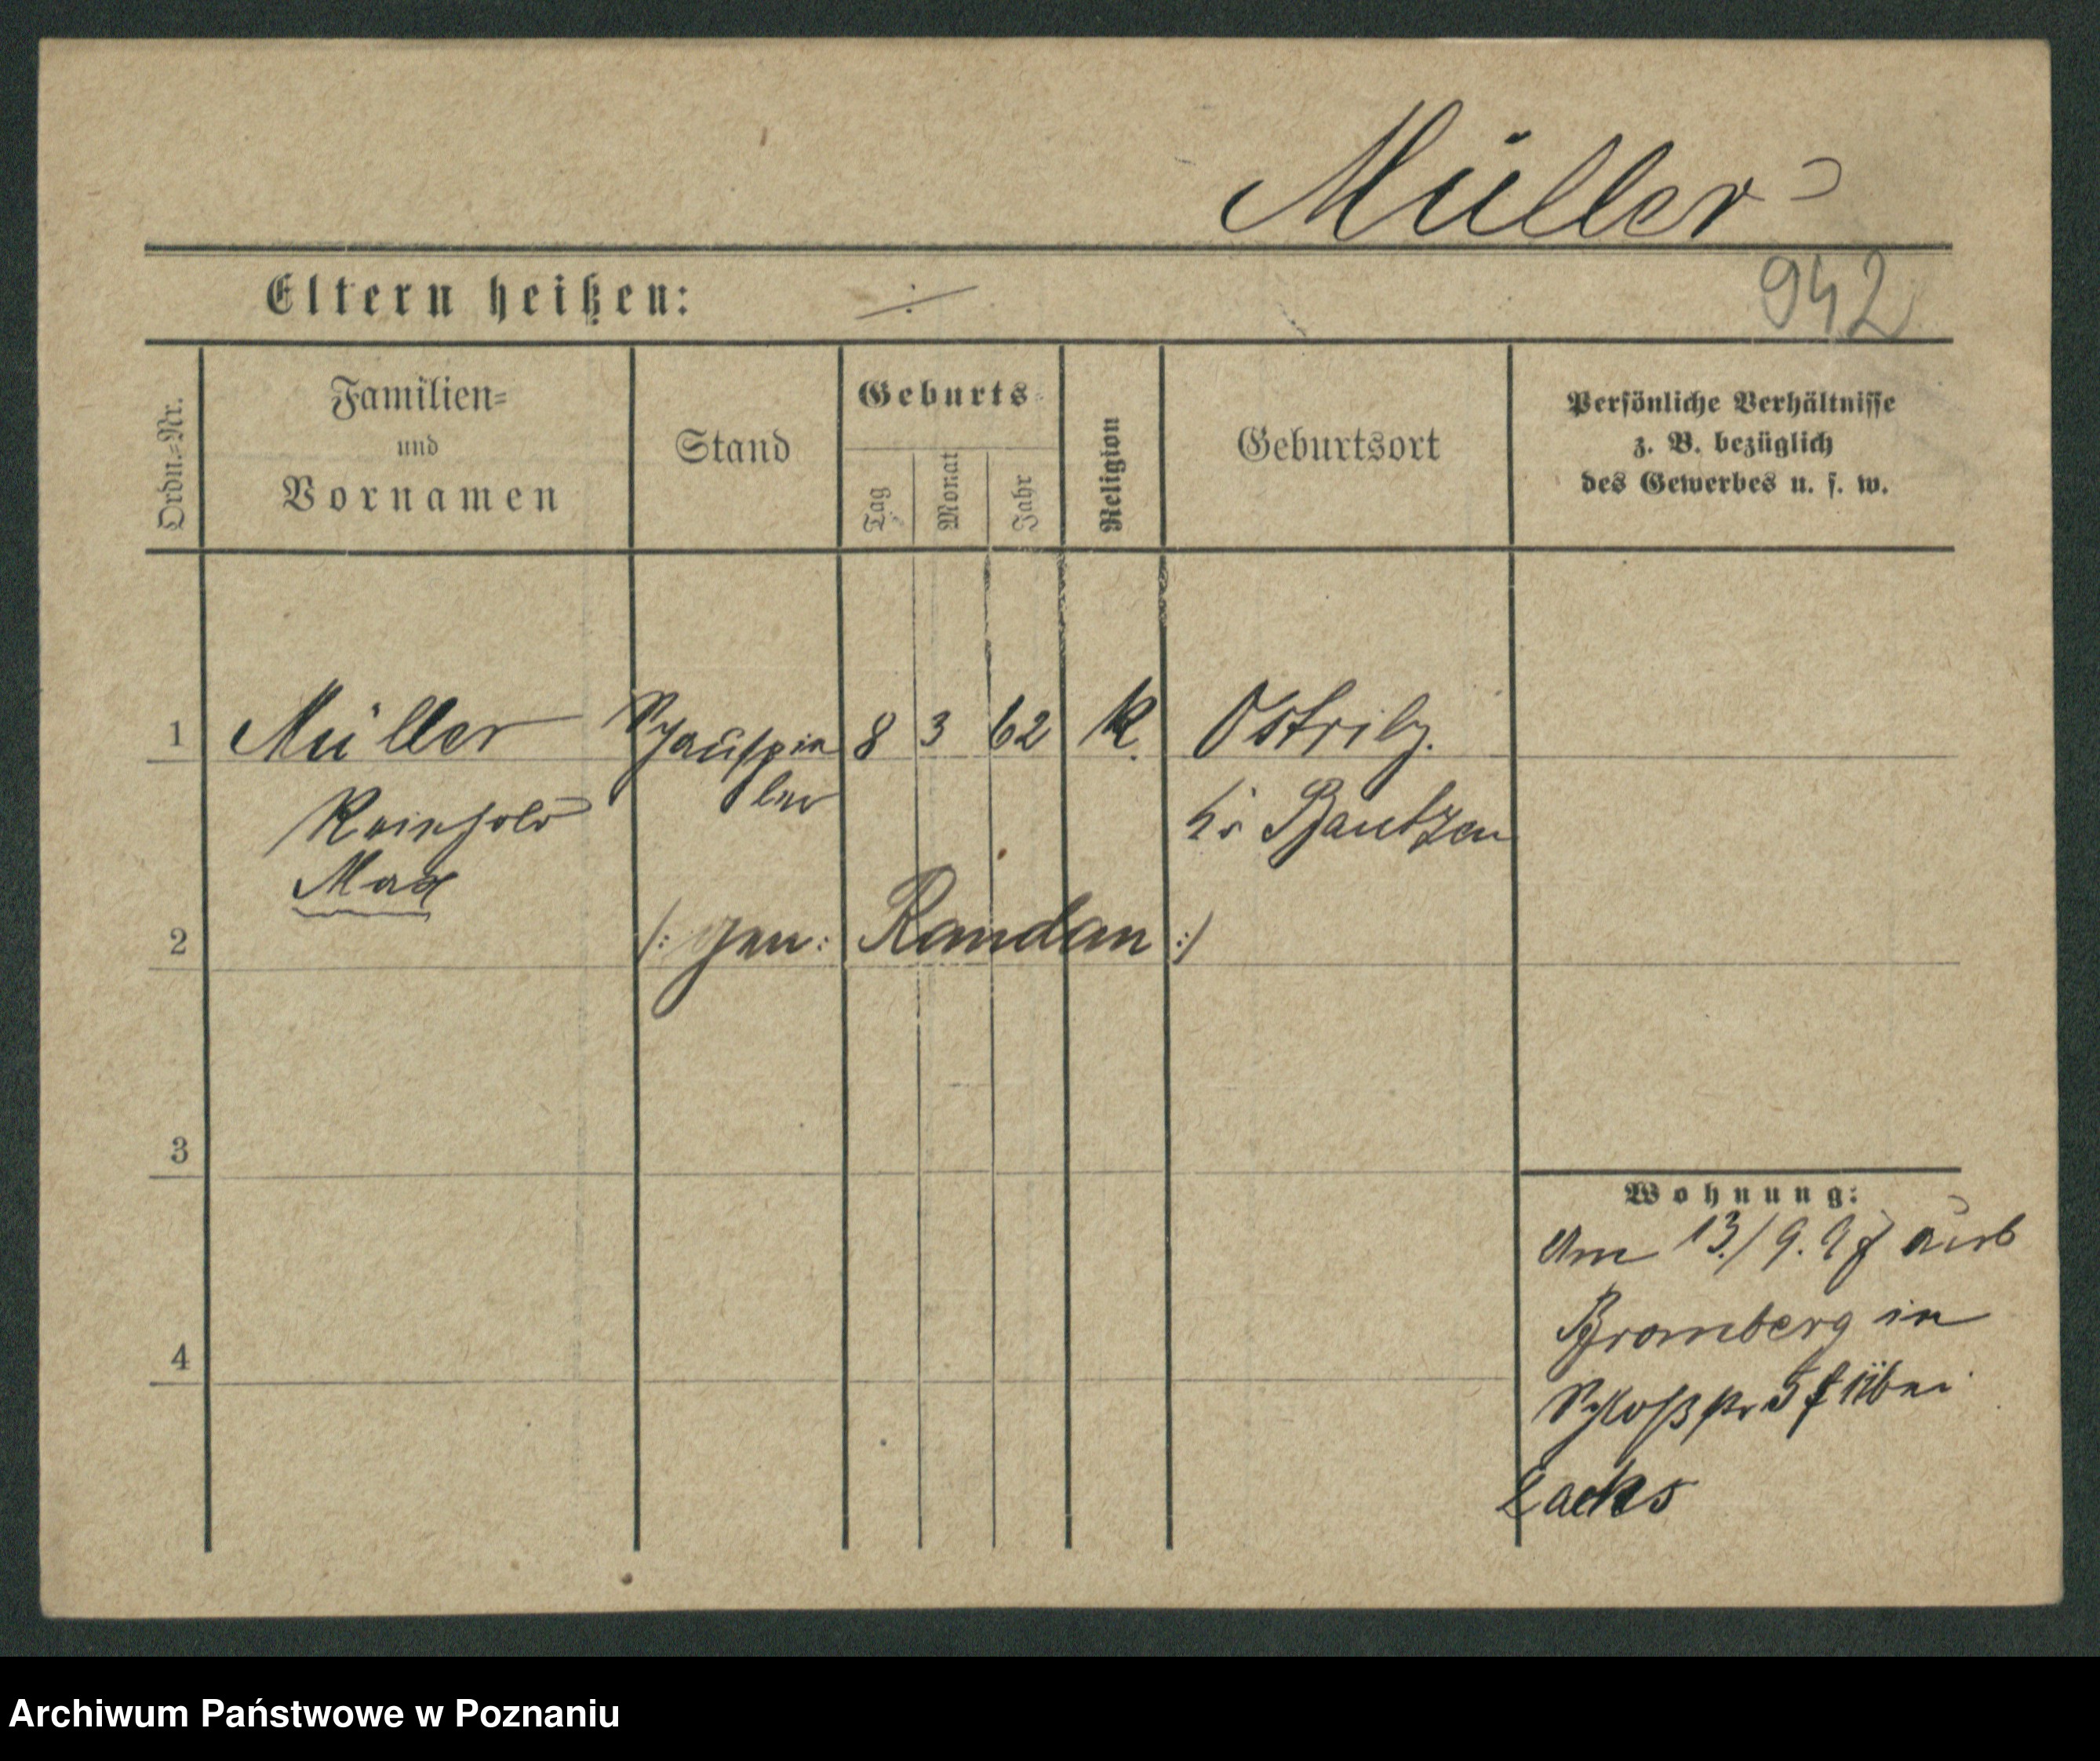 Müller
Eltern heißen: ÷
942
Ordn.=Nr.
Familien=
und
Vornamen
Stand
Geburts=
Tag
Monat
Jahr
Religion
Geburtsort
Persönliche Verhältnisse
z. B. bezüglich
des Gewerbes u. s. w.
1 Müller Schauspie 8 3 62 K. Ostritz.
Reinhold ler Kr Bautzen
Max
2 /: gen: Randan :/
3
4
Wohnung:
Am 13./9.97 aus
Bromberg in
bei
Lacks
Archiwum Państwowe w Poznaniu